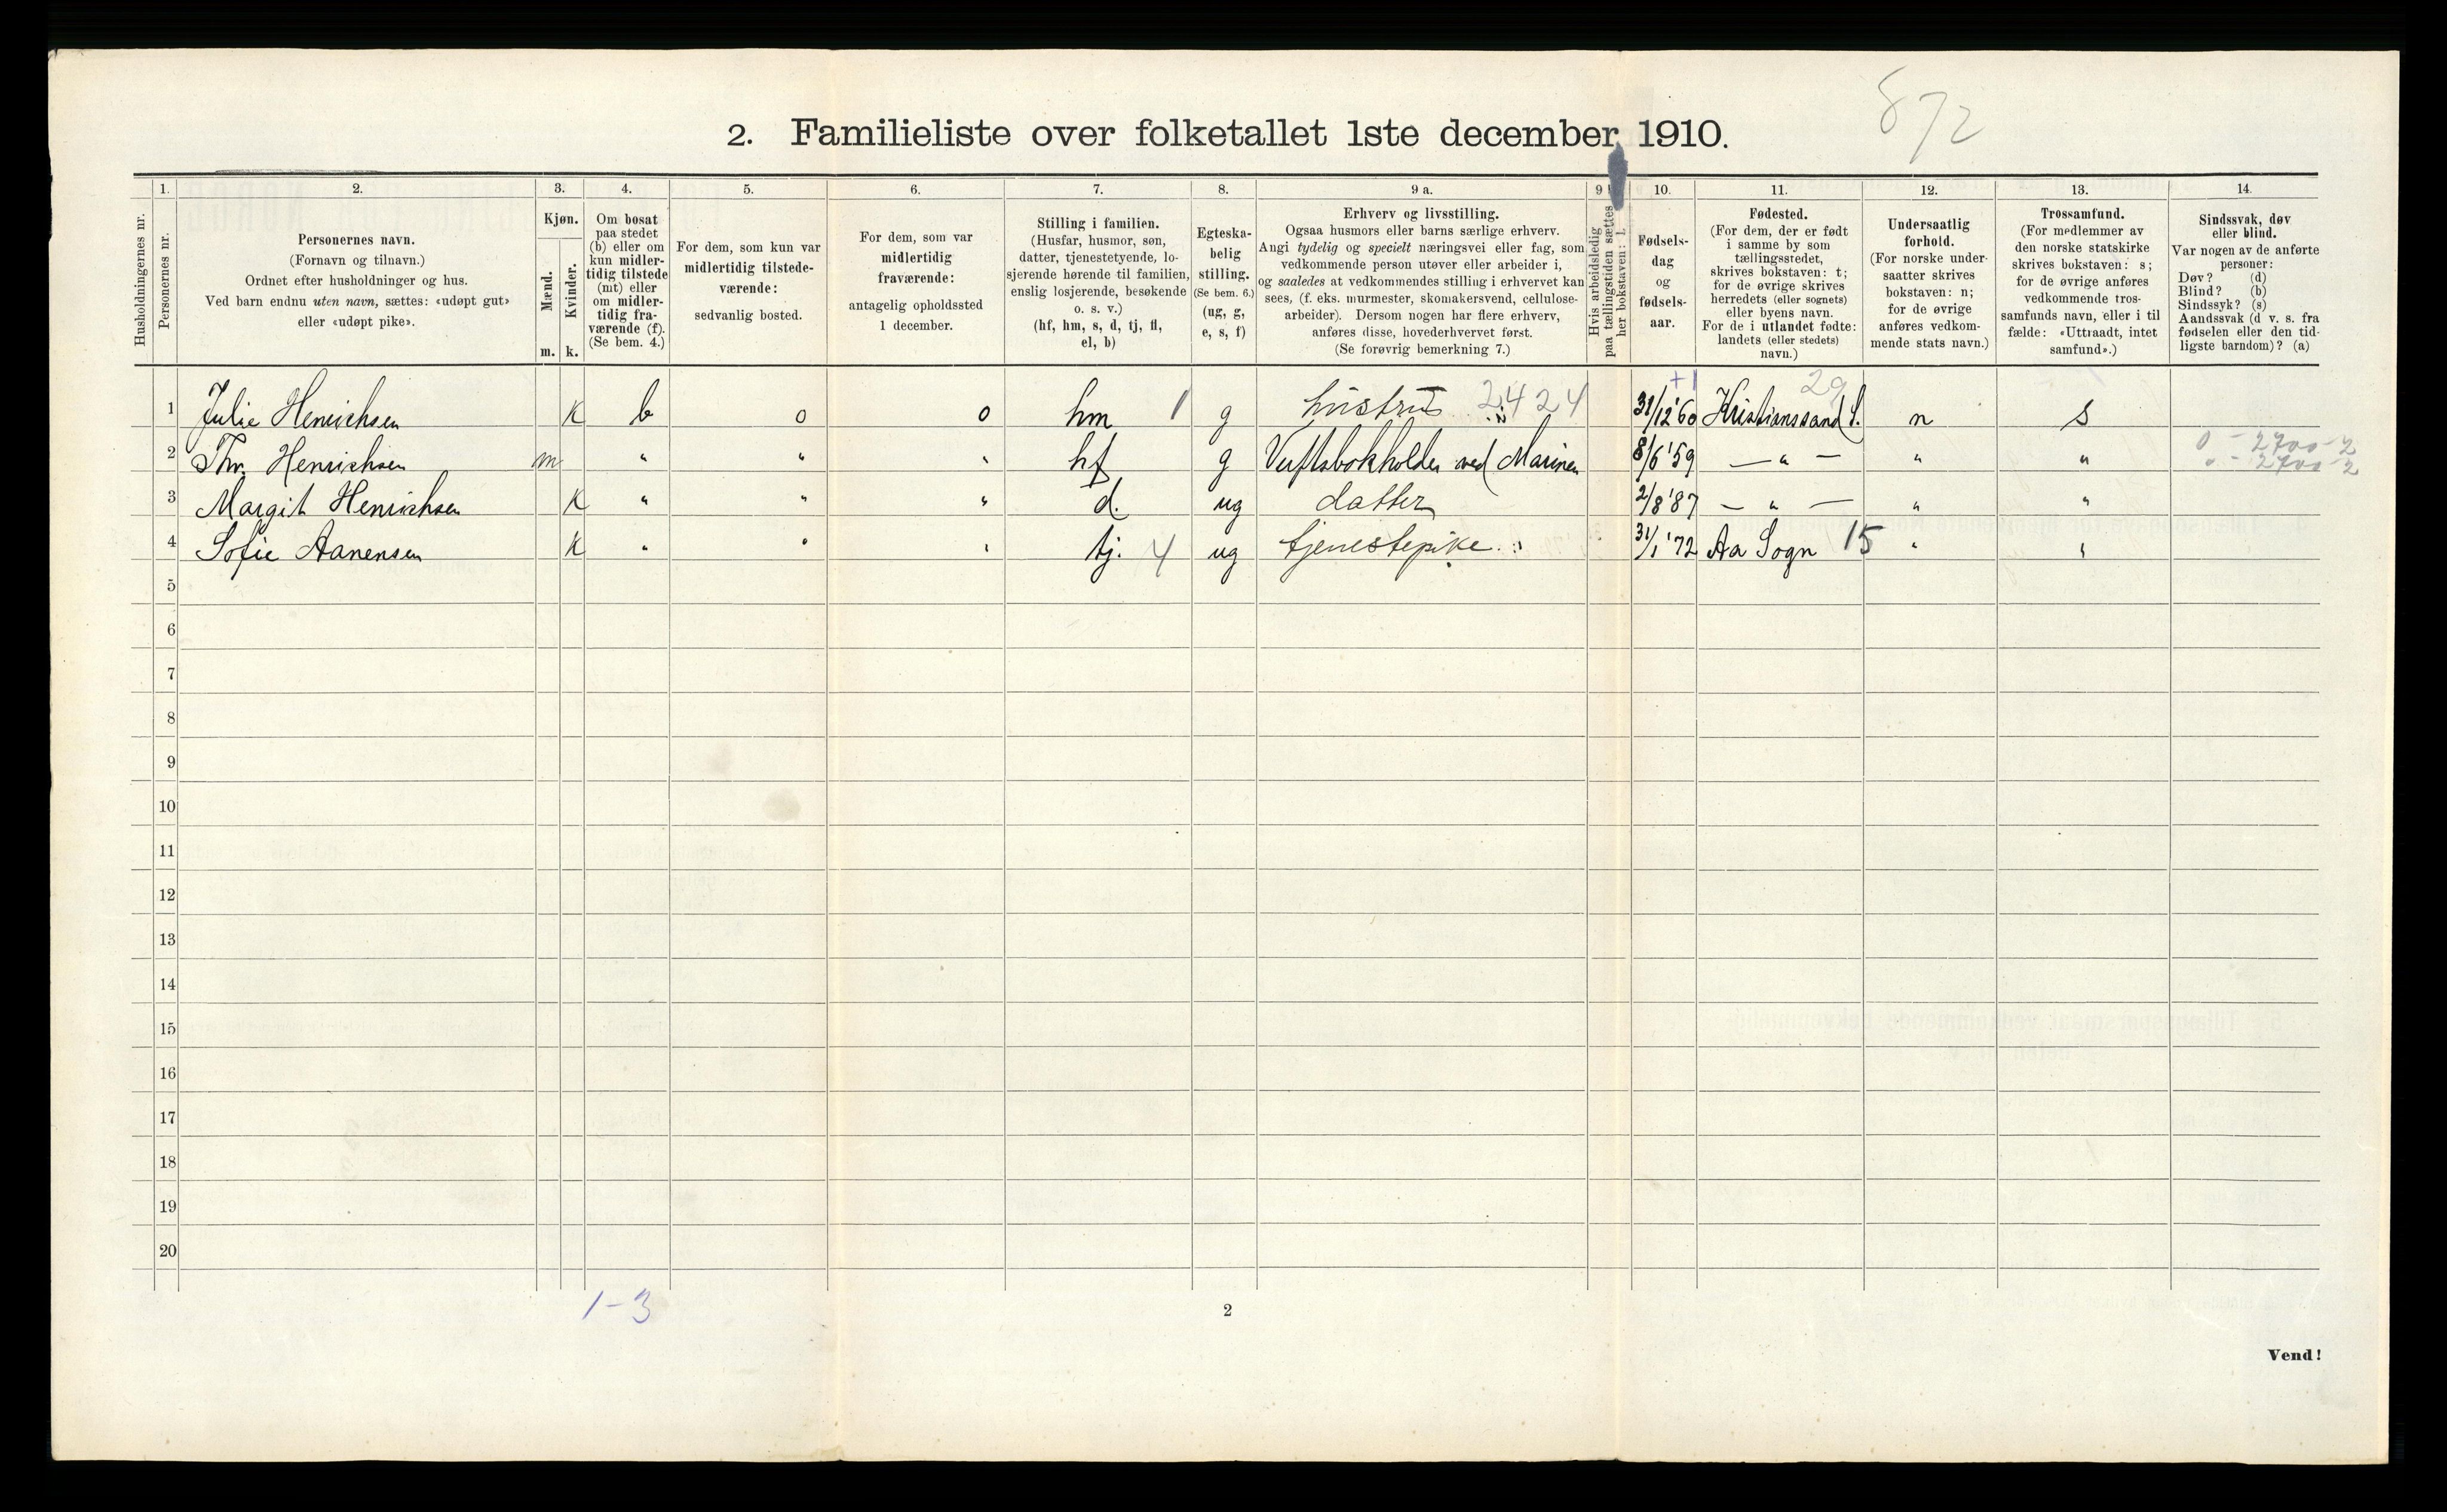 872
2. Familieliste over folketallet 1ste december 1910.
1. 2. 3. 4. 5. 6. 7. 8. 9 a. 9 10. 11. 12. 13. 14.
Husholdningernes nr.
Personernes nr.
Personernes navn.
(Fornavn og tilnavn.)
Ordnet efter husholdninger og hus.
Ved barn endnu uten navn, sættes: «udøpt gut»
eller «udøpt pike».
Kjøn.
Mænd.
Kvinder.
m. k.
Om bosat
paa stedet
(b) eller om
kun midler-
tidig tilstede
(mt) eller
om midler-
tidig fra-
værende (f).
(Se bem. 4.)
For dem, som kun var
midlertidig tilstede-
værende:
sedvanlig bosted.
For dem, som var
midlertidig
fraværende:
antagelig opholdssted
1 december.
Stilling i familien.
(Husfar, husmor, søn,
datter, tjenestetyende, lo-
sjerende hørende til familien,
enslig losjerende, besøkende
o. s. v.)
(hf, hm, s, d, tj, fl,
el, b)
Egteska-
belig
stilling.
(Se bem. 6.)
(ug, g,
e, s, f)
Erhverv og livsstilling.
Ogsaa husmors eller barns særlige erhverv.
Angi tydelig og specielt næringsvei eller fag, som
vedkommende person utøver eller arbeider i,
og saaledes at vedkommendes stilling i erhvervet kan
sees, (f. eks. murmester, skomakersvend, cellulose-
arbeider). Dersom nogen har flere erhverv,
anføres disse, hovederhvervet først.
(Se forøvrig bemerkning 7.)
Hvis arbeidsledig
paa tællingstiden sættes
her bokstaven: l.
Fødsels-
dag
og
fødsels-
aar.
Fødested.
(For dem, der er født
i samme by som
tællingsstedet,
skrives bokstaven: t;
for de øvrige skrives
herredets (eller sognets)
eller byens navn.
For de i utlandet fødte:
landets (eller stedets)
navn.)
Undersaatlig
forhold.
(For norske under-
saatter skrives
bokstaven: n;
for de øvrige
anføres vedkom-
mende stats navn.)
Trossamfund.
(For medlemmer av
den norske statskirke
skrives bokstaven: s;
for de øvrige anføres
vedkommende tros-
samfunds navn, eller i til
fælde: «Uttraadt, intet
samfund».)
Sindssvak, døv
eller blind.
Var nogen av de anførte
personer:
Døv? (d)
Blind? (b)
Sindssyk? (s)
Aandssvak (d. v. s. fra
fødselen eller den tid-
ligste barndom)? (a)
+1 29
1 Julie Henrichsen K b o o hm 1 g hustru 2424 31/12'60 Kristianssand S. n s
0 - 2700-2
2 Thv. Henrichsen m " " " hf g Verftsbokholder ved Marinen 8/6'59 — " — " " 0 - 2700-2
3 Margit Henrichsen K " " " d. ug datter 2/8'87 — " — " "
4 Sofie Aanensen K " " " tj. 4 ug tjenestepike 31/1'72 Aa Sogn 15 " "
5
6
7
8
9
10
11
12
13
14
15
16
17
18
19
20
1-3
2
Vend!